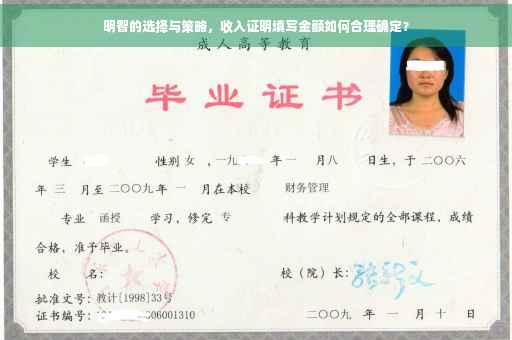 明智的选择与策略，收入证明填写金额如何合理确定？
成人高等教育
毕业证书
学生 性别 女 ，一九 年 一 月 八 日生，于 二〇〇六
年 三 月至 二〇〇九 年 一 月在本校 财务管理
专业 函授 学习，修完 专 科教学计划规定的全部课程，成绩
合格，准予毕业。
校 名： 校（院）长：
批准文号：教计[1998]33号
证书编号： 06001310 二〇〇九 年 一 月 十 日